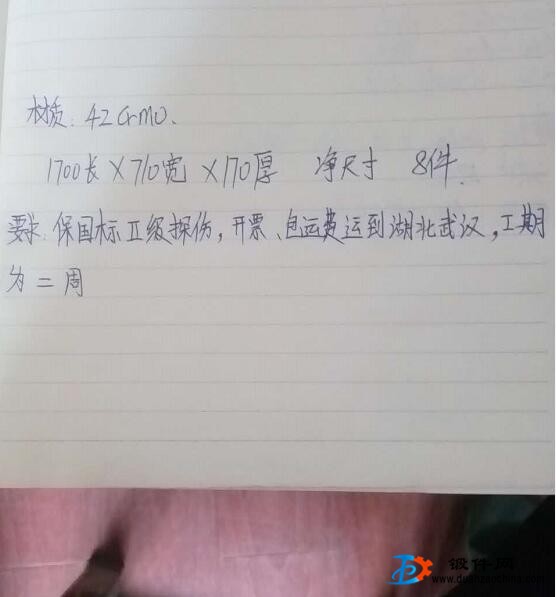 材质：42CrMO.
1700长×710宽×170厚 净尺寸 8件.
要求：保国标Ⅱ级探伤，开票、包运费运到湖北武汉，工期
为二周
锻件网